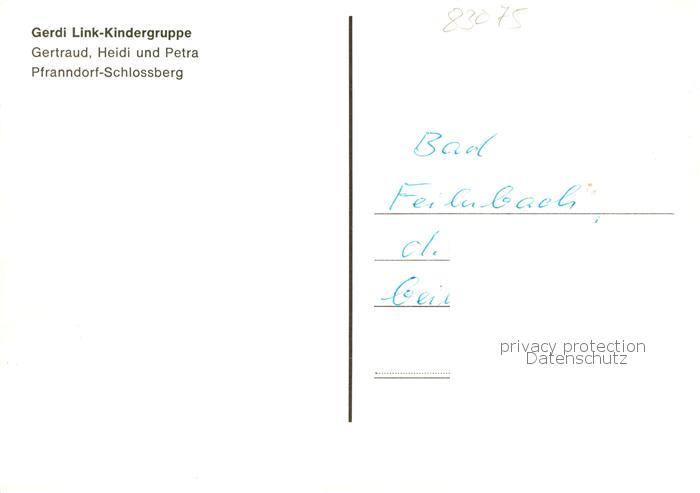 Gerdi Link-Kindergruppe
Gertraud, Heidi und Petra
Pfranndorf-Schlossberg
83075
Bad
Feilnbach,
d.
privacy protection
Datenschutz